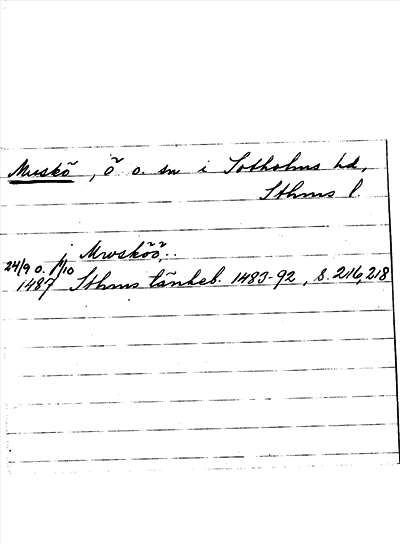 Muskö, ö o. sn i Sotholms hd,
Sthms l.
j Mwsköö..
24/9 o. 1/10
1487 Sthms tänkeb. 1483-92, s. 216, 218